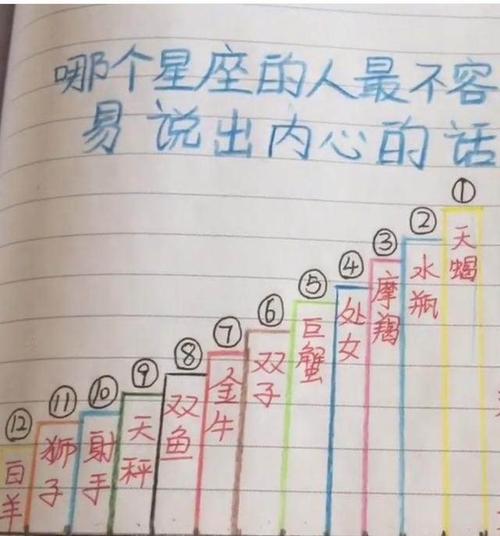 哪个星座的人最不容
易说出内心的话
① 天蝎
② 水瓶
③ 摩羯
④ 处女
⑤ 巨蟹
⑥ 双子
⑦ 金牛
⑧ 双鱼
⑨ 天秤
⑩ 射手
⑪ 狮子
⑫ 白羊